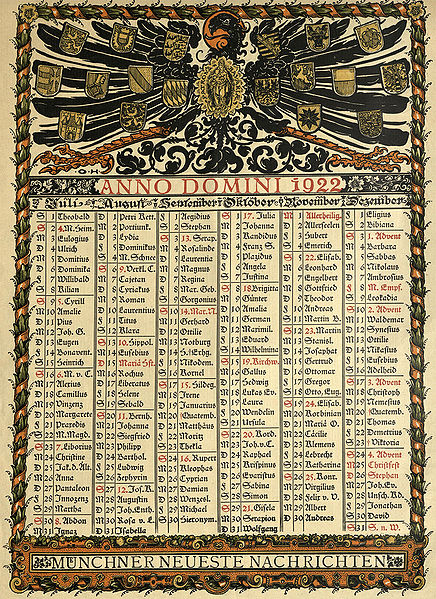 O·H
ANNO DOMINI 1922
Juli
S 1 Theobald
S 2 4. M. Heim.
M 3 Eulogius
D 4 Ulrich
M 5 Domitius
D 6 Dominika
F 7 Willibald
S 8 Kilian
S 9 5. Cyrill
M 10 Amalie
D 11 Pius
M 12 Joh. G.
D 13 Eugen
F 14 Bonavent.
S 15 Heinrich
S 16 6. M. v. C.
M 17 Alexius
D 18 Camillus
M 19 Vinzenz
D 20 Margarete
F 21 Praxedis
S 22 M. Magd.
S 23 7. Liborius
M 24 Christine
D 25 Jak. d. Ält.
M 26 Anna
D 27 Pantaleon
F 28 Innozenz
S 29 Martha
S 30 8. Abdon
M 31 Ignaz
August
D 1 Petri Kett.
M 2 Portiunk.
D 3 Lydia
F 4 Dominikus
S 5 M. Schnee
S 6 9. Verkl. C.
M 7 Cajetan
D 8 Cyriakus
M 9 Roman
D 10 Laurentius
F 11 Titus
S 12 Klara
S 13 10. Hippol.
M 14 Eusebius
D 15 Mariä Hft.
M 16 Rochus
D 17 Liberatus
F 18 Helene
S 19 Sebald
S 20 11. Bernh.
M 21 Johanna
D 22 Siegfried
M 23 Philipp
D 24 Barthol.
F 25 Ludwig
S 26 Zephyrin
S 27 12. Jos. K.
M 28 Augustin
D 29 Joh. Enth.
M 30 Rosa v. L.
D 31 Isabella
September
F 1 Aegidius
S 2 Stephan
S 3 13. Serap.
M 4 Rosalinde
D 5 Laurentia
M 6 Magnus
D 7 Regina
F 8 Mar. Geb.
S 9 Gorgonius
S 10 14. Mar. N.
M 11 Gerhard
D 12 Ottilie
M 13 Notburg
D 14 H. Erhg.
F 15 Nikodem.
S 16 Kornel
S 17 15. Hildeg.
M 18 Irene
D 19 Januarius
M 20 Quatemb.
D 21 Matthäus
F 22 Moritz
S 23 Thekla
S 24 16. Rupert
M 25 Kleophas
D 26 Cyprian
M 27 Damian
D 28 Wenzel.
F 29 Michael
S 30 Hieronym.
Oktober
S 1 17. Julia
M 2 Johanna
D 3 Kandidus
M 4 Franz S.
D 5 Plazidus
F 6 Angela
S 7 Justina
S 8 18. Brigitta
M 9 Günter
D 10 Amalie
M 11 German
D 12 Maximil.
F 13 Eduard
S 14 Wilhelmina
S 15 19. Kirchw.
M 16 Gallus
D 17 Hedwig
M 18 Lukas Ev.
D 19 Laura
F 20 Wendelin
S 21 Ursula
S 22 20. Kord.
M 23 Joh. v. C.
D 24 Raphael
M 25 Krispinus
D 26 Evaristus
F 27 Sabina
S 28 Simon
S 29 21. Gisela
M 30 Serapion
D 31 Wolfgang
November
M 1 Allerheilig.
D 2 Allerseelen
F 3 Hubert
S 4 Emerich
S 5 22. Elisab.
M 6 Leonhard
D 7 Engelbert
M 8 Gottfried
D 9 Theodor
F 10 Andreas
S 11 Martin B.
S 12 23. Martin
M 13 Stanisl.
D 14 Josaphat
M 15 Gertrud
D 16 Othmar
F 17 Gregor
S 18 Otto, Eug.
S 19 24. Elisab.
M 20 Korbinian
D 21 Mariä O.
M 22 Cäcilie
D 23 Klemens
F 24 Lebrecht
S 25 Katharina
S 26 25. Konr.
M 27 Virgilius
D 28 Felix v. V.
M 29 Albert
D 30 Andreas
Dezember
F 1 Eligius
S 2 Bibiana
S 3 1. Advent
M 4 Barbara
D 5 Sabbas
M 6 Nikolaus
D 7 Ambrosius
F 8 M. Empf.
S 9 Leokadia
S 10 2. Advent
M 11 Waldemar
D 12 Synesius
M 13 Ottilie
D 14 Nikasius
F 15 Eusebius
S 16 Adelheid
S 17 3. Advent
M 18 Christoph
D 19 Nemesius
M 20 Quatemb.
D 21 Thomas
F 22 Demetrius
S 23 Viktoria
S 24 4. Advent
M 25 Christfest
D 26 Stephan
M 27 Joh. Ev.
D 28 Unsch. Kd.
F 29 Jonathan
S 30 David
S 31 S. n. W.
MÜNCHNER NEUESTE NACHRICHTEN